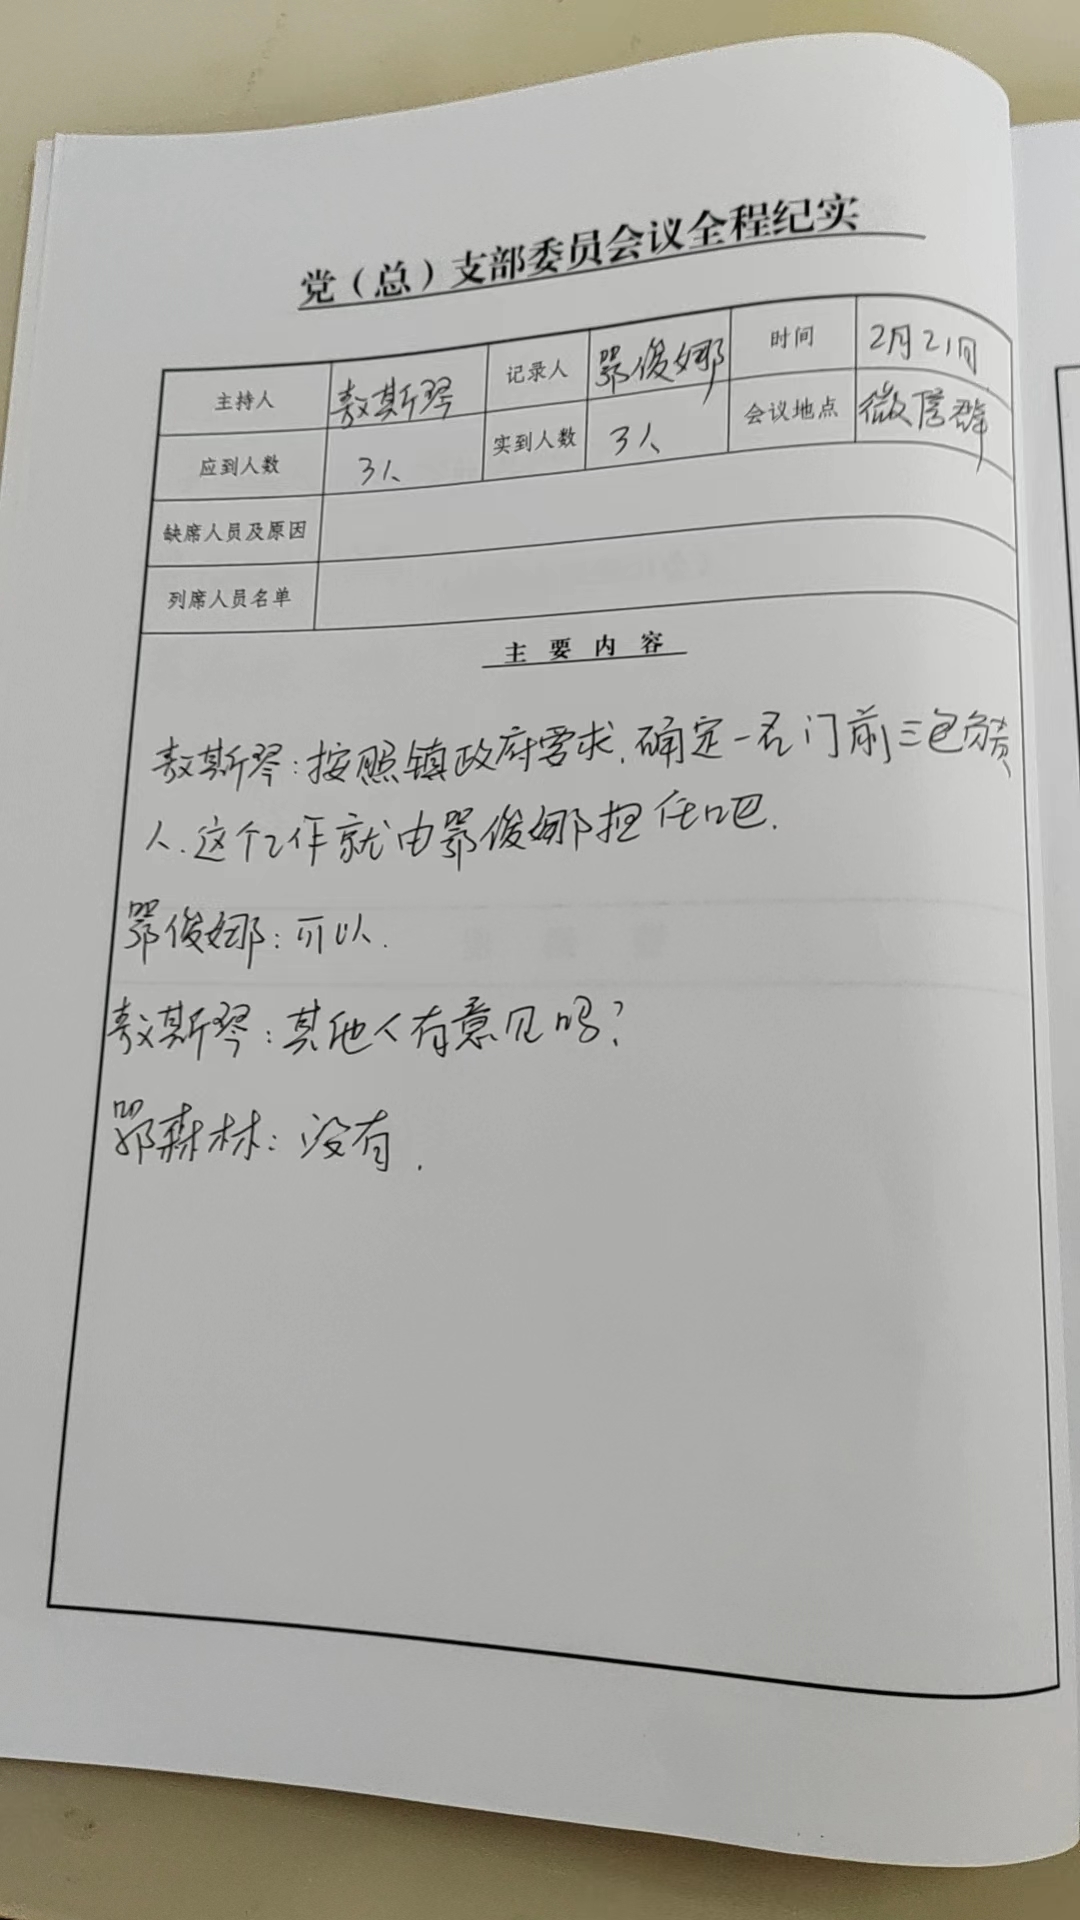 党（总）支部委员会议全程纪实
主持人 敖斯琴 记录人 鄂俊娜 时间 2月21日
应到人数 3人 实到人数 3人 会议地点 微信群
缺席人员及原因
列席人员名单
主要内容
敖斯琴：按照镇政府要求，确定一名门前三包负责
人，这个工作就由鄂俊娜担任吧.
鄂俊娜：可以.
敖斯琴：其他人有意见吗？
鄂森林：没有.